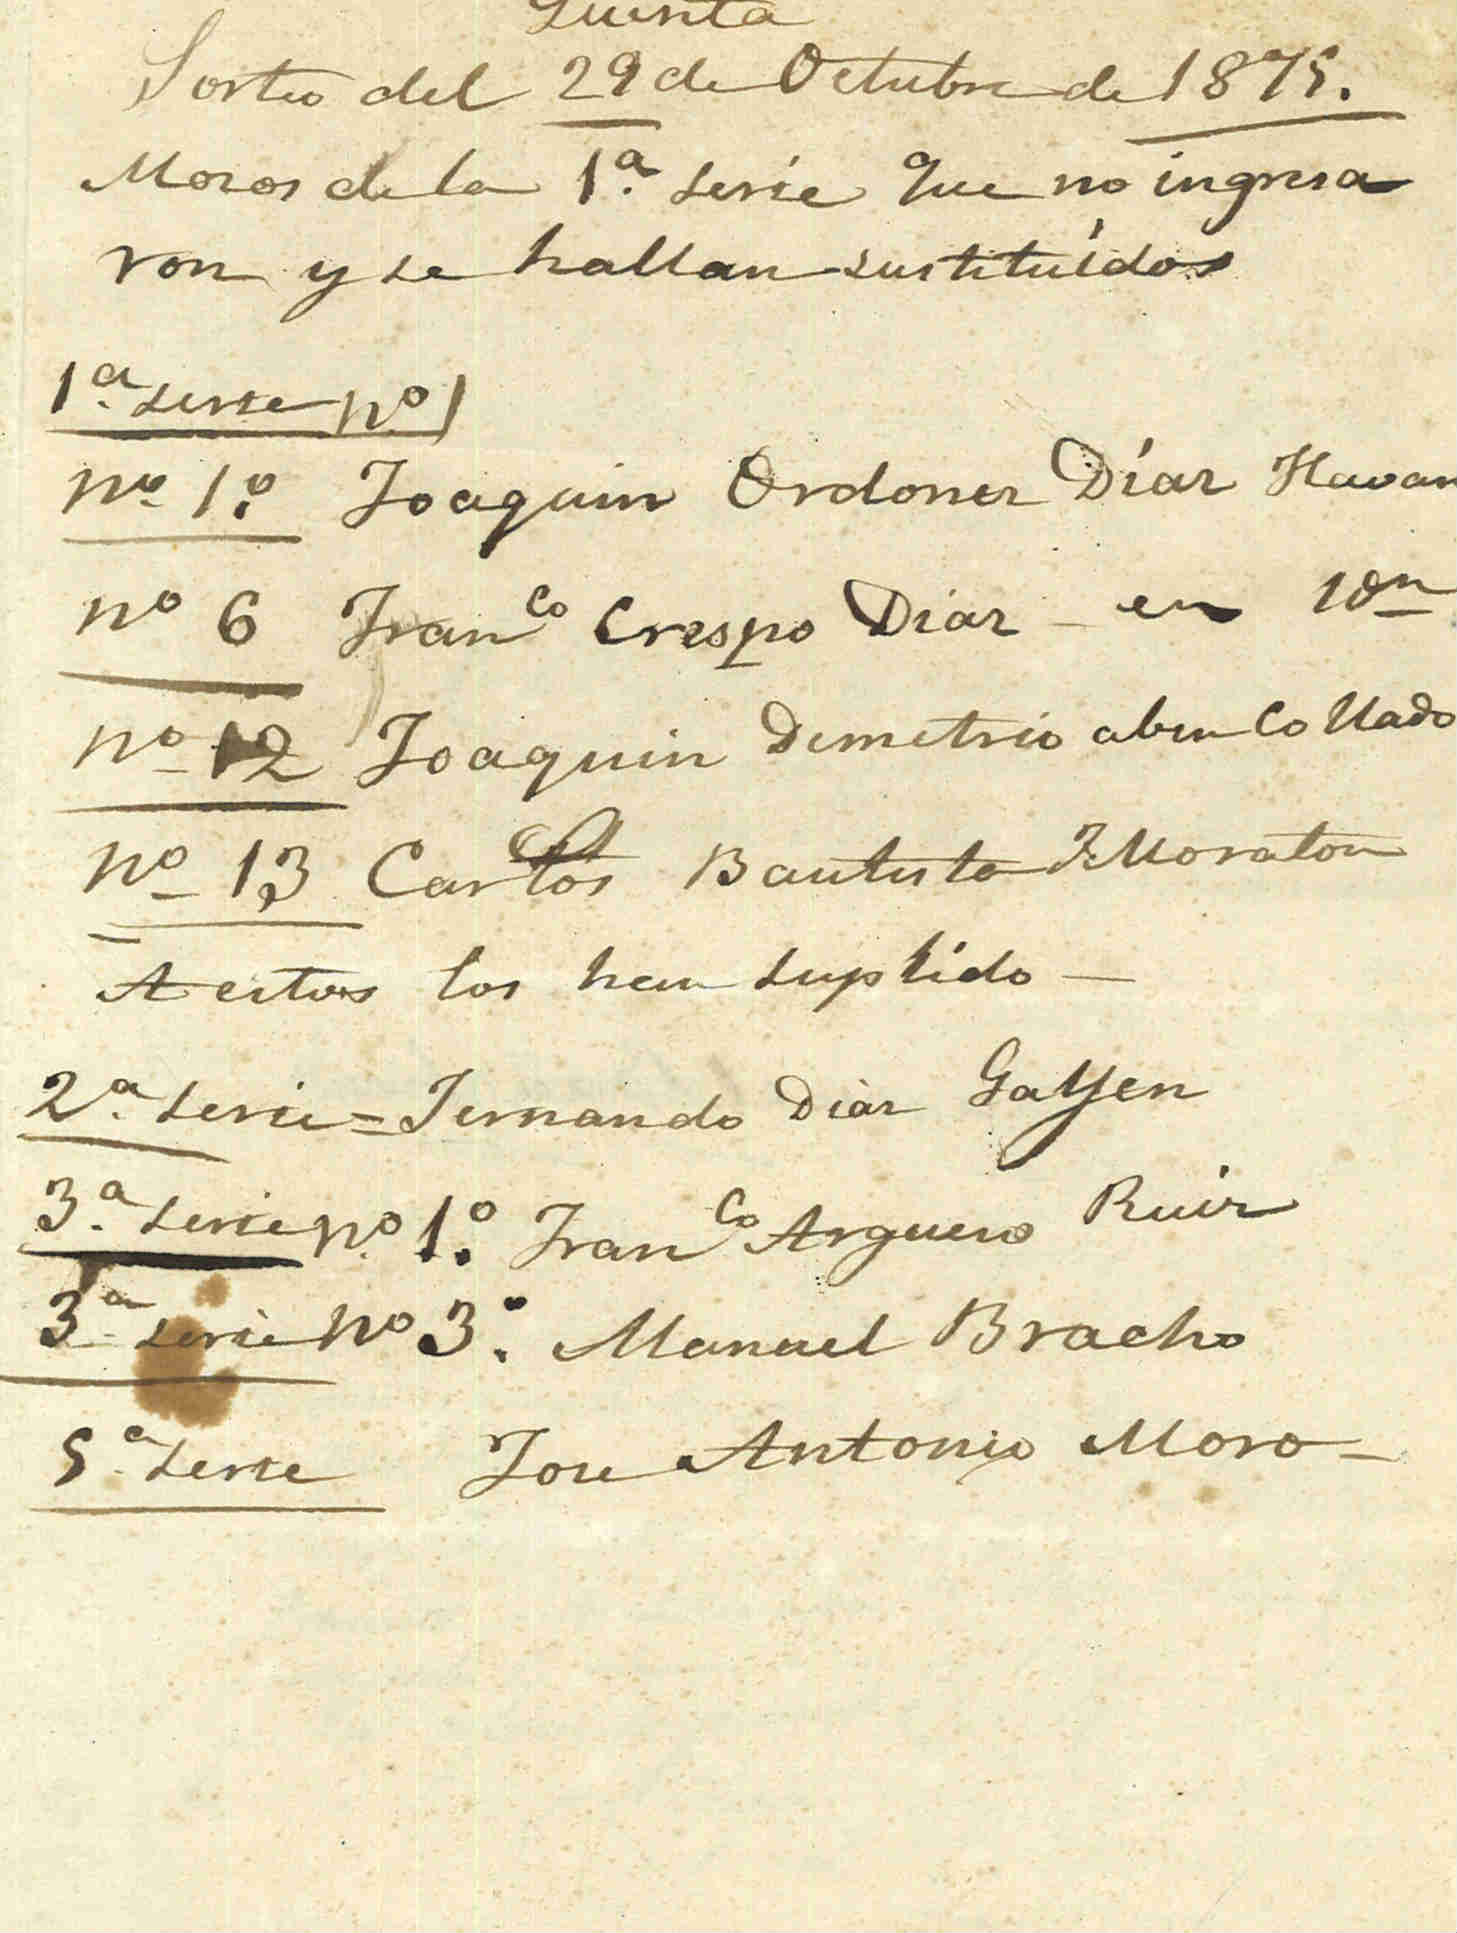 Quinta
Sorteo del 29 de Octubre de 1875.
Mozos de la 1ª serie que no ingresa
ron y se hallan sustituídos
1ª serie nº 1
nº 1º Joaquin Ordoñez Díaz Havan
nº 6 Franco Crespo Diaz - en Idn
nº 12 Joaquin Demetrio Collado
nº 13 Carlos Bautista Moraton
A estos los han suplído —
2ª serie = Fernando Diaz Gayen
3ª serie nº 1º Franco Arguero Ruiz
3ª serie nº 3º Manuel Bracho
5ª serie Jose Antonio Moro -